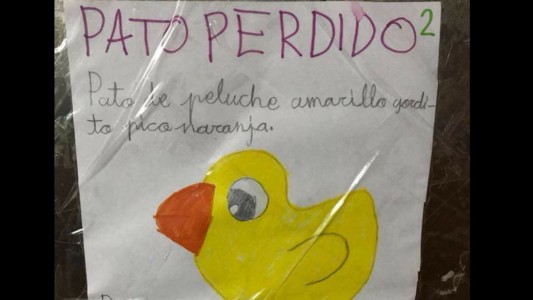 PATO PERDIDO²
Pato de peluche amarillo gordi-
to pico naranja.